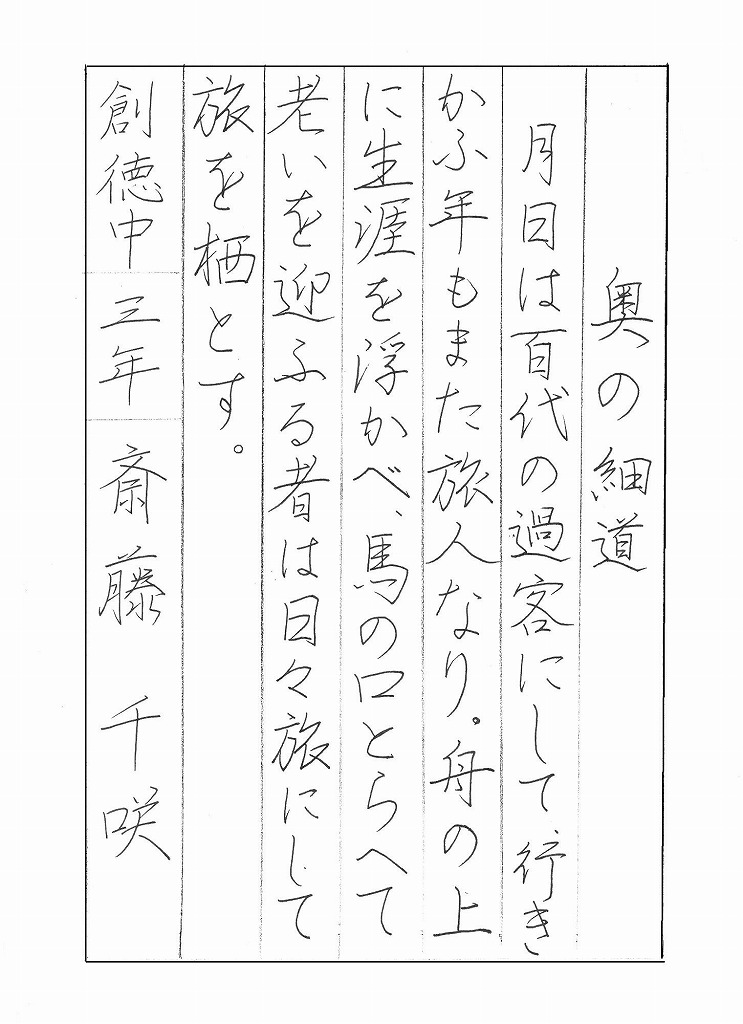 奥の細道
月日は百代の過客にして、行き
かふ年もまた旅人なり。舟の上
に生涯を浮かべ、馬の口とらへて
老いを迎ふる者は日々旅にして
旅を栖とす。
創徳中 三年 斎藤 千咲